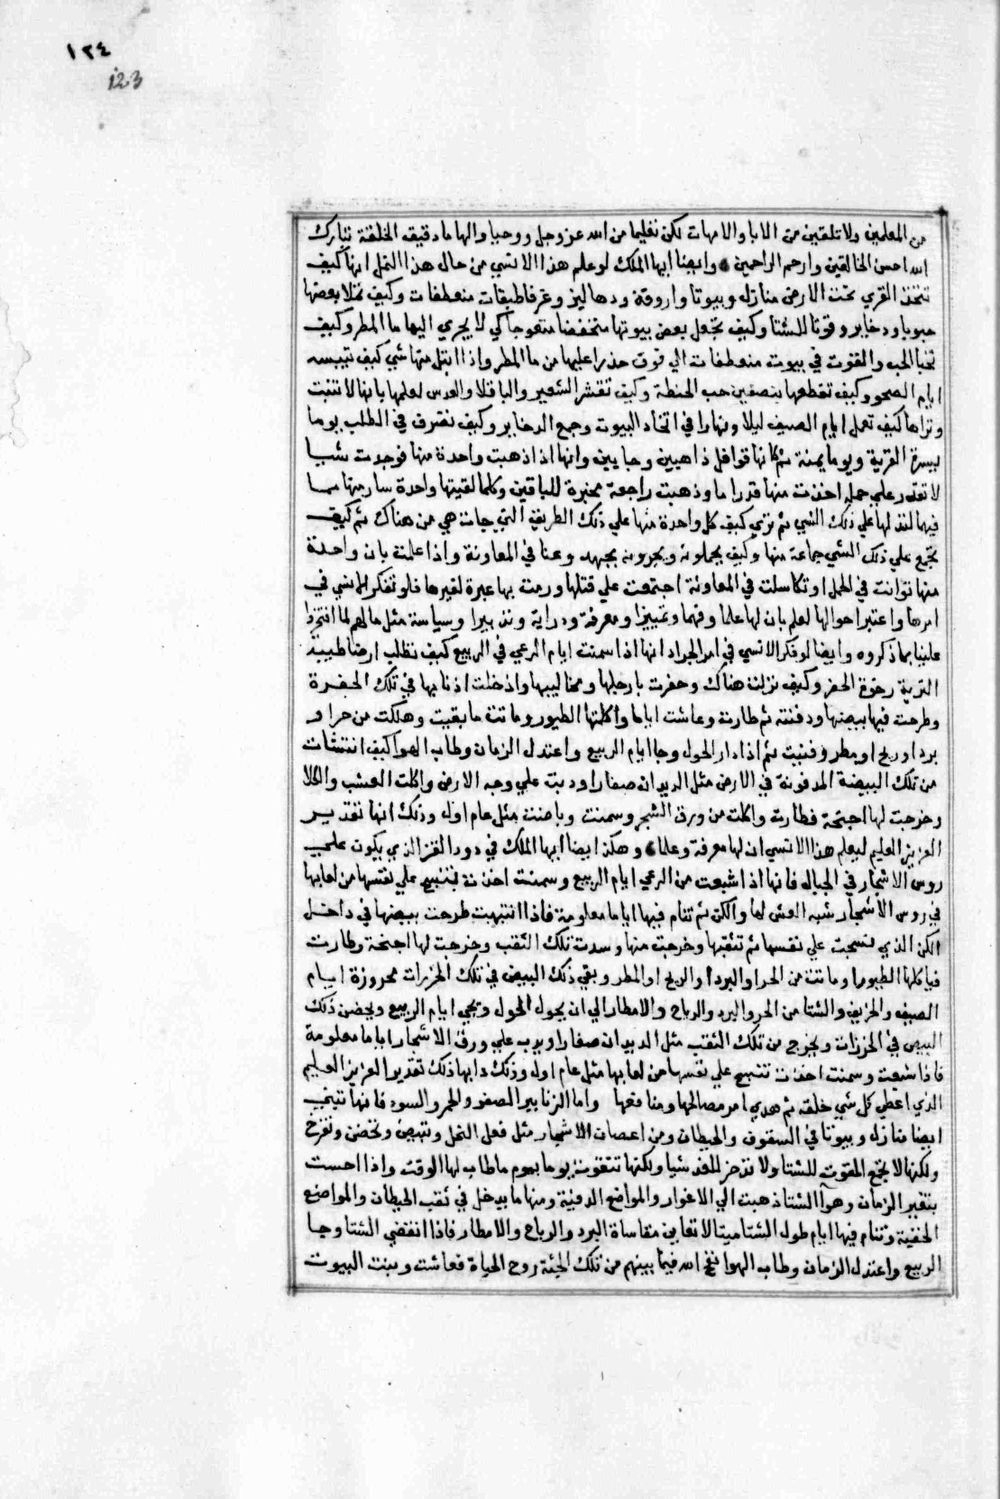 ١٢٤
123
من المعلمين ولا تلقين من الابا والامهات لكن تعليما من الله عز وجل ووحيا والهاما دقيق الخلقة تبارك
الله احسن الخالقين وارحم الراحمين وايضا ايها الملك لو علم هذا الانسي من حال هذا النمل انها كيف
تتخذ القري تحت الارض منازل وبيوتا واروقة ودهاليز وغرفا طبقات منعطفات وكيف تملا بعضها
حبوبا ودخاير وقوتا للشتا وكيف تجعل بعض بيوتها منخفضا متعوجا كي لا يجري اليها ما المطر وكيف
تخبا الحب والقوت في بيوت منعطفات الي فوق حذرا عليها من ما المطر واذا ابتل منها شي كيف تيبسه
ايام الصحو وكيف تقطعها بنصفين حب الحنطة وكيف تقشر الشعير والباقلا والعدس لعلمها بانها لا تنبت
وتراها كيف تعمل ايام الصيف ليلا ونهارا في اتخاد البيوت وجمع الدخاير وكيف تفترق في الطلب يوما
يسرة القرية ويوما يمنة ثم كانها قوافل ذاهبين وجايين وانها اذا ذهبت واحدة منها فوجدت شيا
لا تقدر علي حمله اخذت منها قدرا ما وذهبت راجعة مخبرة للباقين وكلما لقيتها واحدة سارعتها مما
فيها لتدلها علي ذلك الشي ثم تري كيف كل واحدة منها علي ذلك الطريق التي جات هي من هناك ثم كيف
تجتمع علي ذلك الشي جماعة منها وكيف يحملونه ويجرونه بجهد وعنا في المعاونة واذا علمت بان واحدة
منها توانت في الحمل او تكاسلت في المعاونة اجتمعت علي قتلها ورمت بها عبرة لغيرها فلو تفكر الانسي في
امرها واعتبر احوالها لعلم بان لها علما وفهما وتمييزا ومعرفة ودراية وتدبيرا وسياسة مثل ما لهم لما افتخروا
علينا بما ذكروه وايضا لو فكر الانسي في امر الجراد انها اذا سمنت ايام الرعي في الربيع كيف تطلب ارضا طيبة
التربة رخوة الحفر وكيف نزلت هناك وحفرت بارجلها ومخاليبها وادخلت اذنابها في تلك الحفرة
وطرحت فيها بيضها ودفنته ثم طارت وعاشت اياما واكلتها الطيور وماتت ما بقيت وهلكت من حر او
برد او ريح او مطر وفنيت ثم اذا دار الحول وجا ايام الربيع واعتدل الزمان وطاب الهوا كيف انتشات
من تلك البيضة المدفونة في الارض مثل الديدان صغارا ودبت علي وجه الارض واكلت العشب والكلا
وخرجت لها اجنحة فطارت واكلت من ورق الشجر وسمنت وباضت مثل عام اول وذلك انها تقدير
العزيز العليم ليعلم هذا الانسي ان لها معرفة وعلما وهكذا ايضا ايها الملك في دود القز الذي يكون علي
روس الاشجار في الجبال فانها اذا شبعت من الرعي ايام الربيع وسمنت اخذت تنسج علي نفسها من لعابها
في روس الاشجار شبه العش لها والكن ثم تنام فيها اياما معلومة فاذا انتبهت طرحت بيضها في داخل
الكن الذي نسجت علي نفسها ثم تثقبها وخرجت منها وسدت تلك الثقب وخرجت لها اجنحة وطارت
فياكلها الطيور او ماتت من الحر او البرد او الريح او المطر وبقي ذلك البيض في تلك الخرزات محروزة ايام
الصيف والخريف والشتا من الحر والبرد والرياح والامطار الي ان يحول الحول ويجي ايام الربيع ويحضن ذلك
البيض في الخرزات ويخرج من تلك الثقب مثل الديدان صغارا ويدب علي ورق الاشجار اياما معلومة
فاذا شبعت وسمنت اخذت تنسج علي نفسها من لعابها مثل عام اول وذلك دابها ذلك تقدير العزيز العليم
الذي اعطي كل شي خلقه ثم هدي امر مصالحها ومنافعها واما الزنابير الصفر والحمر والسود فانها تبني
ايضا منازل وبيوتا في السقوف والحيطان ومن اعصان الاشجار مثل فعل النحل وتبيض وتحضن وتفرخ
ولكنها لا تجمع القوت للشتا ولا تدخر للغد شيا ولكنها تتقوت يوما بيوم ما طاب لها الوقت واذا احست
بتغير الزمان وهوا الشتا ذهبت الي الاغوار والمواضع الدفية ومنها ما يدخل في ثقب الحيطان والمواضع
الخفية وتنام فيها ايام طول الشتا ميتا لا تعاين مقاساة البرد والرياح والامطار فاذا انقضي الشتا وجا
الربيع واعتدل الزمان وطاب الهوا نفخ الله فيما بينهم من تلك الجثة روح الحياة فعاشت وبنت البيوت